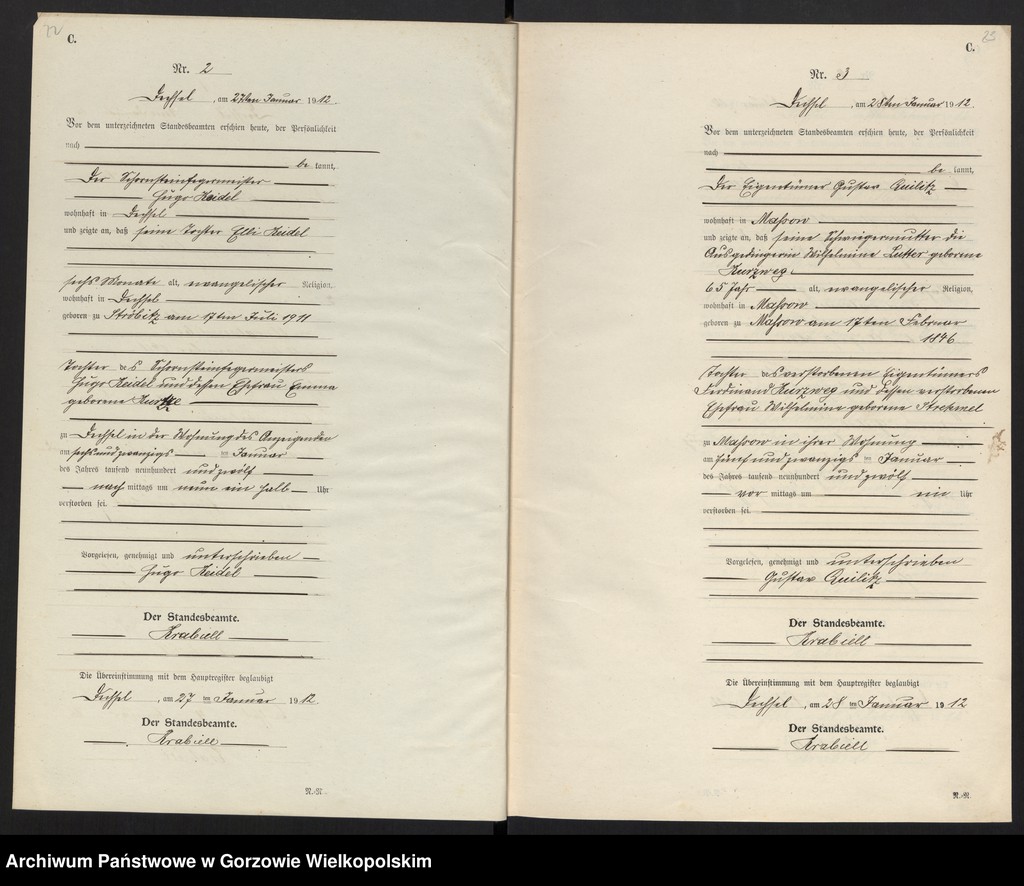 22
C.
Nr. 2
Dechsel, am 27ten Januar 1912.
Vor dem unterzeichneten Standesbeamten erschien heute, der Persönlichkeit
nach
be kannt,
Der Schornsteinfegermeister
Hugo Heidel
wohnhaft in Dechsel
und zeigte an, daß seine Tochter Elli Heidel
sechs Monate alt, evangelischer Religion,
wohnhaft in Dechsel
geboren zu Ströbitz am 17ten Juli 1911
Tochter des Schornsteinfegermeisters
Hugo Heidel und dessen Ehefrau Emma
geborene
zu Dechsel in der Wohnung des Anzeigenden
am sechsundzwanzigs ten Januar
des Jahres tausend neunhundert und zwölf
nach mittags um neun ein halb Uhr
verstorben sei.
Vorgelesen, genehmigt und unterschrieben
Hugo Heidel
Der Standesbeamte.
Krabiell
Die Übereinstimmung mit dem Hauptregister beglaubigt
Dechsel, am 27 ten Januar 1912.
Der Standesbeamte.
Krabiell
N.-N.
C.
Nr. 3
Dechsel, am 28ten Januar 1912.
Vor dem unterzeichneten Standesbeamten erschien heute, der Persönlichkeit
nach
be kannt,
Der Eigentümer Gustav Quilitz
wohnhaft in Massow
und zeigte an, daß seine Schwiegermutter die
Ausgedingerin Wilhelmine Lutter geborene
Kurzweg
65 Jahr alt, evangelischer Religion,
wohnhaft in Massow
geboren zu Massow am 17ten Februar
1846
Tochter des verstorbenen Eigentümers
Ferdinand Kurzweg und dessen verstorbenen
Ehefrau Wilhelmine geborene Strehmel
zu Massow in ihrer Wohnung
am fünfundzwanzigs ten Januar
des Jahres tausend neunhundert und zwölf
vor mittags um ein Uhr
verstorben sei.
Vorgelesen, genehmigt und unterschrieben
Gustav Quilitz
Der Standesbeamte.
Krabiell
Die Übereinstimmung mit dem Hauptregister beglaubigt
Dechsel, am 28 ten Januar 1912
Der Standesbeamte.
Krabiell
N.-N.
Archiwum Państwowe w Gorzowie Wielkopolskim